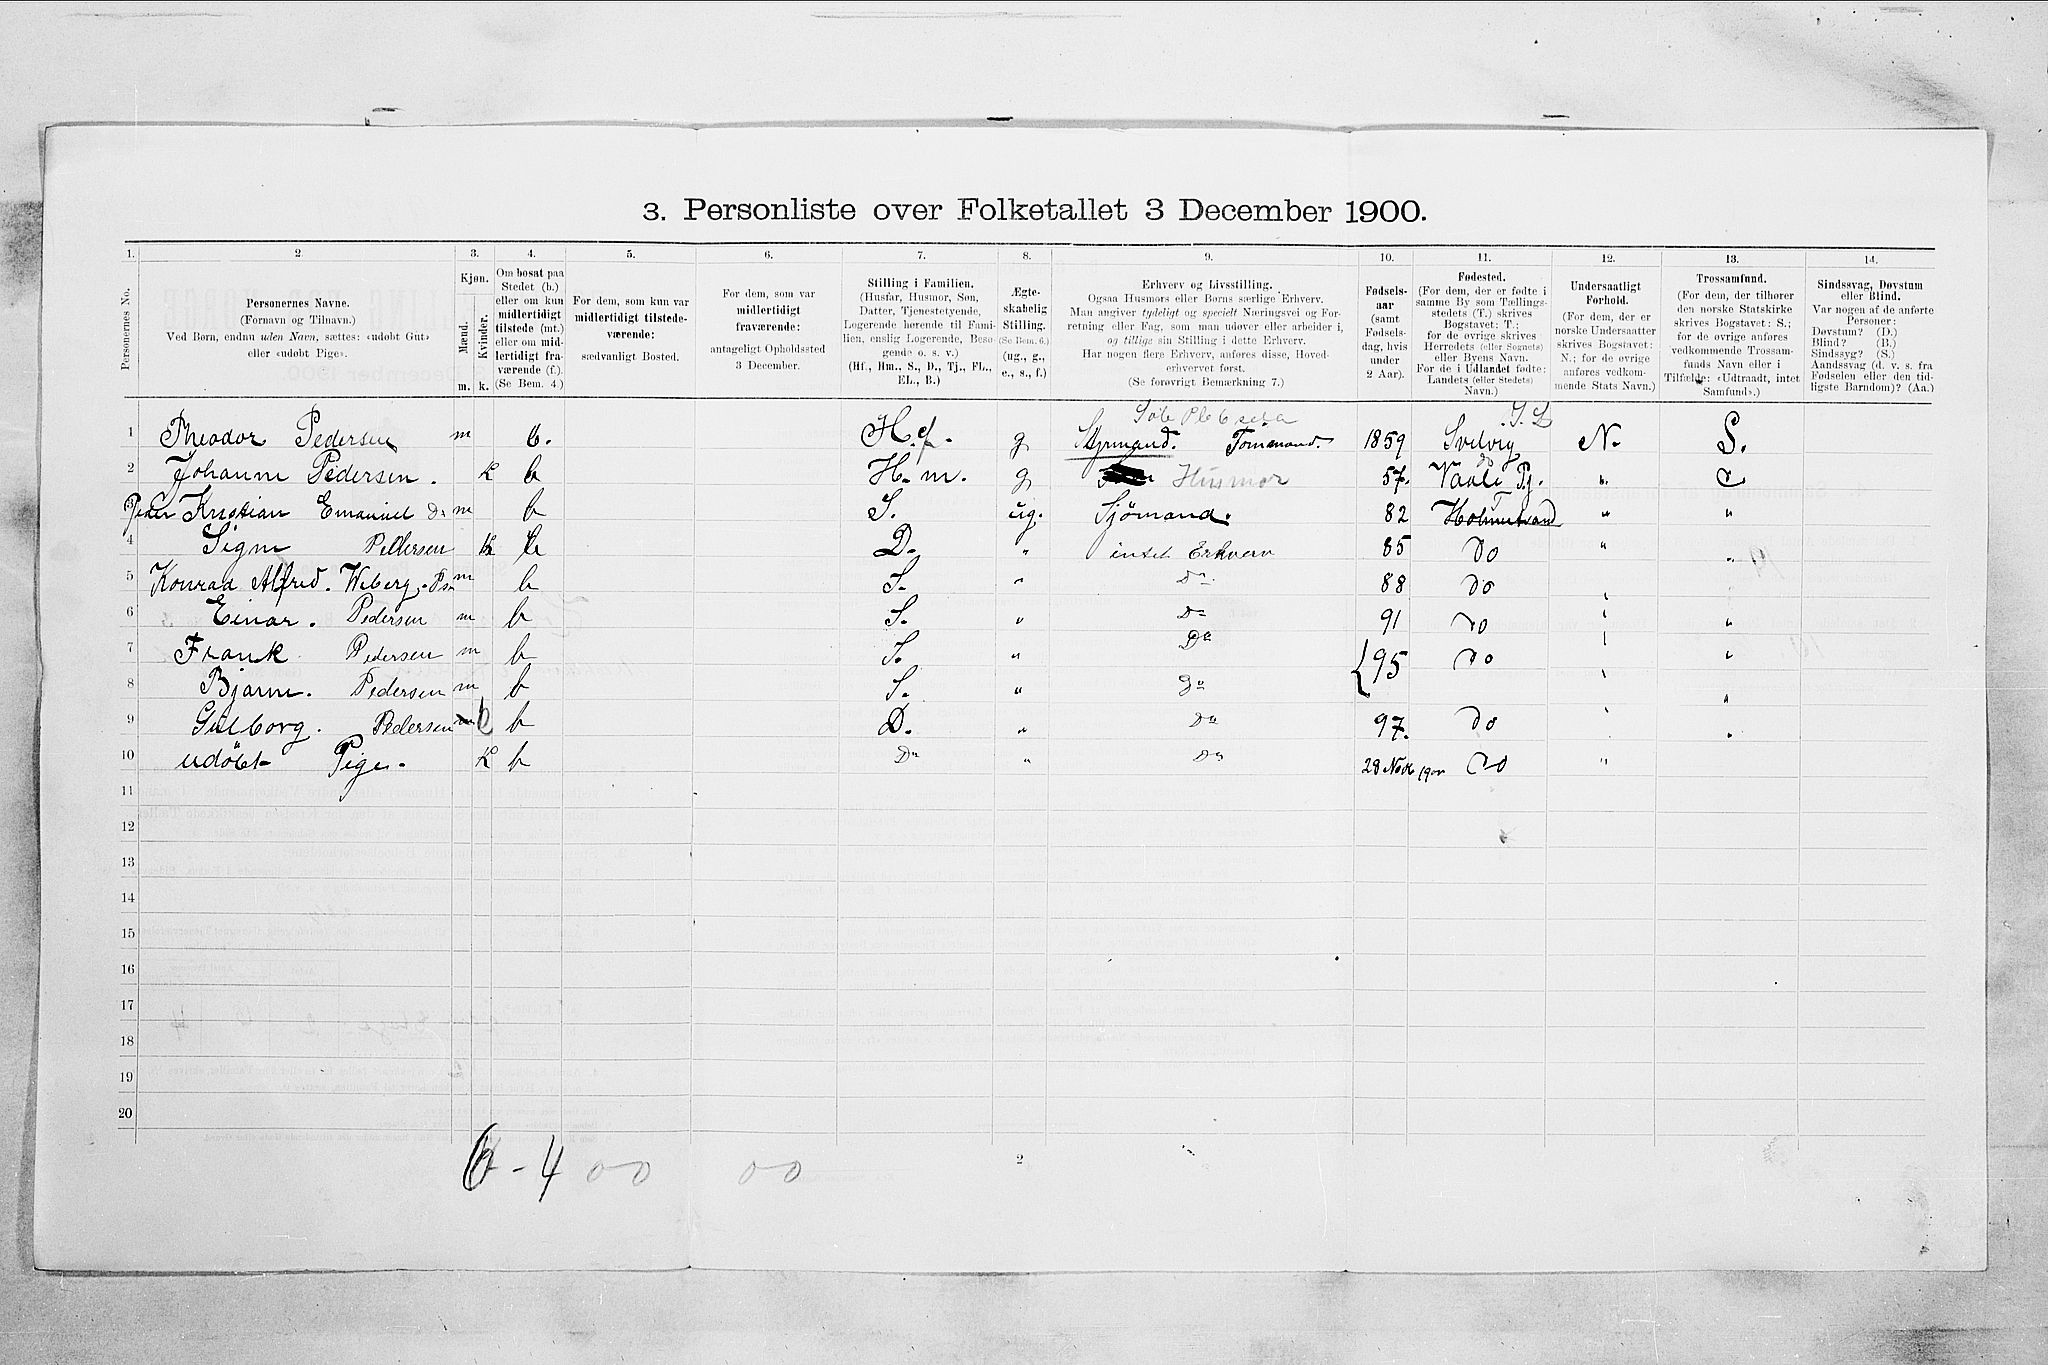 3. Personliste over Folketallet 3 December 1900.
1. 2. 3. 4. 5. 6. 7. 8. 9. 10. 11. 12. 13. 14.
Personernes No.
Personernes Navne.
(Fornavn og Tilnavn.)
Ved Børn, endnu uden Navn, sættes: «udøbt Gut»
eller «udøbt Pige».
Kjøn.
Mænd.
Kvinder.
m. k.
Om bosat paa
Stedet (b.)
eller om kun
midlertidigt
tilstede (mt.)
eller om mid-
lertidigt fra-
værende (f.)
(Se Bem. 4.)
For dem, som kun var
midlertidigt tilstede-
værende:
sædvanligt Bosted.
For dem, som var
midlertidigt
fraværende:
antageligt Opholdssted
3 December.
Stilling i Familien.
(Husfar, Husmor, Søn,
Datter, Tjenestetyende,
Logerende hørende til Fami-
lien, enslig Logerende, Besø-
gende o. s. v.)
(Hf., Hm., S., D., Tj., FL.,
EL., B.)
Ægte-
skabelig
Stilling.
(Se Bem. 6.)
(ug., g.,
e., s., f.)
Erhverv og Livsstilling.
Ogsaa Husmors eller Børns særlige Erhverv.
Man angiver tydeligt og specielt Næringsvei og For-
retning eller Fag, som man udøver eller arbeider i,
og tillige sin Stilling i dette Erhverv.
Har nogen flere Erhverv, anføres disse, Hoved-
erhvervet først.
(Se forøvrigt Bemærkning 7.)
Fødsels-
aar
(samt
Fødsels-
dag, hvis
under
2 Aar).
Fødested.
(For dem, der er fødte i
samme By som Tællings-
stedets (T.) skrives
Bogstavet: T.;
for de øvrige skrives
Herredets (eller Sognets)
eller Byens Navn.
For de i Udlandet fødte:
Landets (eller Stedets)
Navn.)
Undersaatligt
Forhold.
(For dem, der er
norske Undersaatter
skrives Bogstavet:
N.; for de øvrige
anføres vedkom-
mende Stats Navn.)
Trossamfund.
(For dem, der tilhører
den norske Statskirke
skrives Bogstavet: S.;
for de øvrige anføres
vedkommende Trossam-
funds Navn eller i
Tilfælde: «Udtraadt, intet
Samfund».)
Sindssvag, Døvstum
eller Blind.
Var nogen af de anførte
Personer:
Døvstum? (D.)
Blind? (B.)
Sindssyg? (S.)
Aandssvag (d. v. s. fra
Fødselen eller den tid-
ligste Barndom)? (Aa.)
1 Theodor Pedersen m b. H.f. g Styrmand. Tømmand. 1859 Svelvig N. S.
2 Johanne Pedersen. k b H.m. g Husmor 57. Vaale Pg. "
Peder Kristian Emanuel D: m b S. ug. Sjömand. 82 Holmestrand " "
4 Signe Pedersen k b D. " intet Erhverv 85 Do " "
5 Konrad Alfred. Wiberg. Ps m b S. " Do 88 Do
6 Einar. Pedersen m b S. " Do 91 Do "
7 Frank Pedersen m b S. " Do {95 Do "
8 Bjarne. Pedersen m b S. " Do "
9 Gulborg. Pedersen k b D. " Do 97. Do "
10 udöbt Pige. k b Do " Do 28 Nov 1900 Do "
11
12
13
14
15
16
17
18
19
20
6 - 4 00 00
2